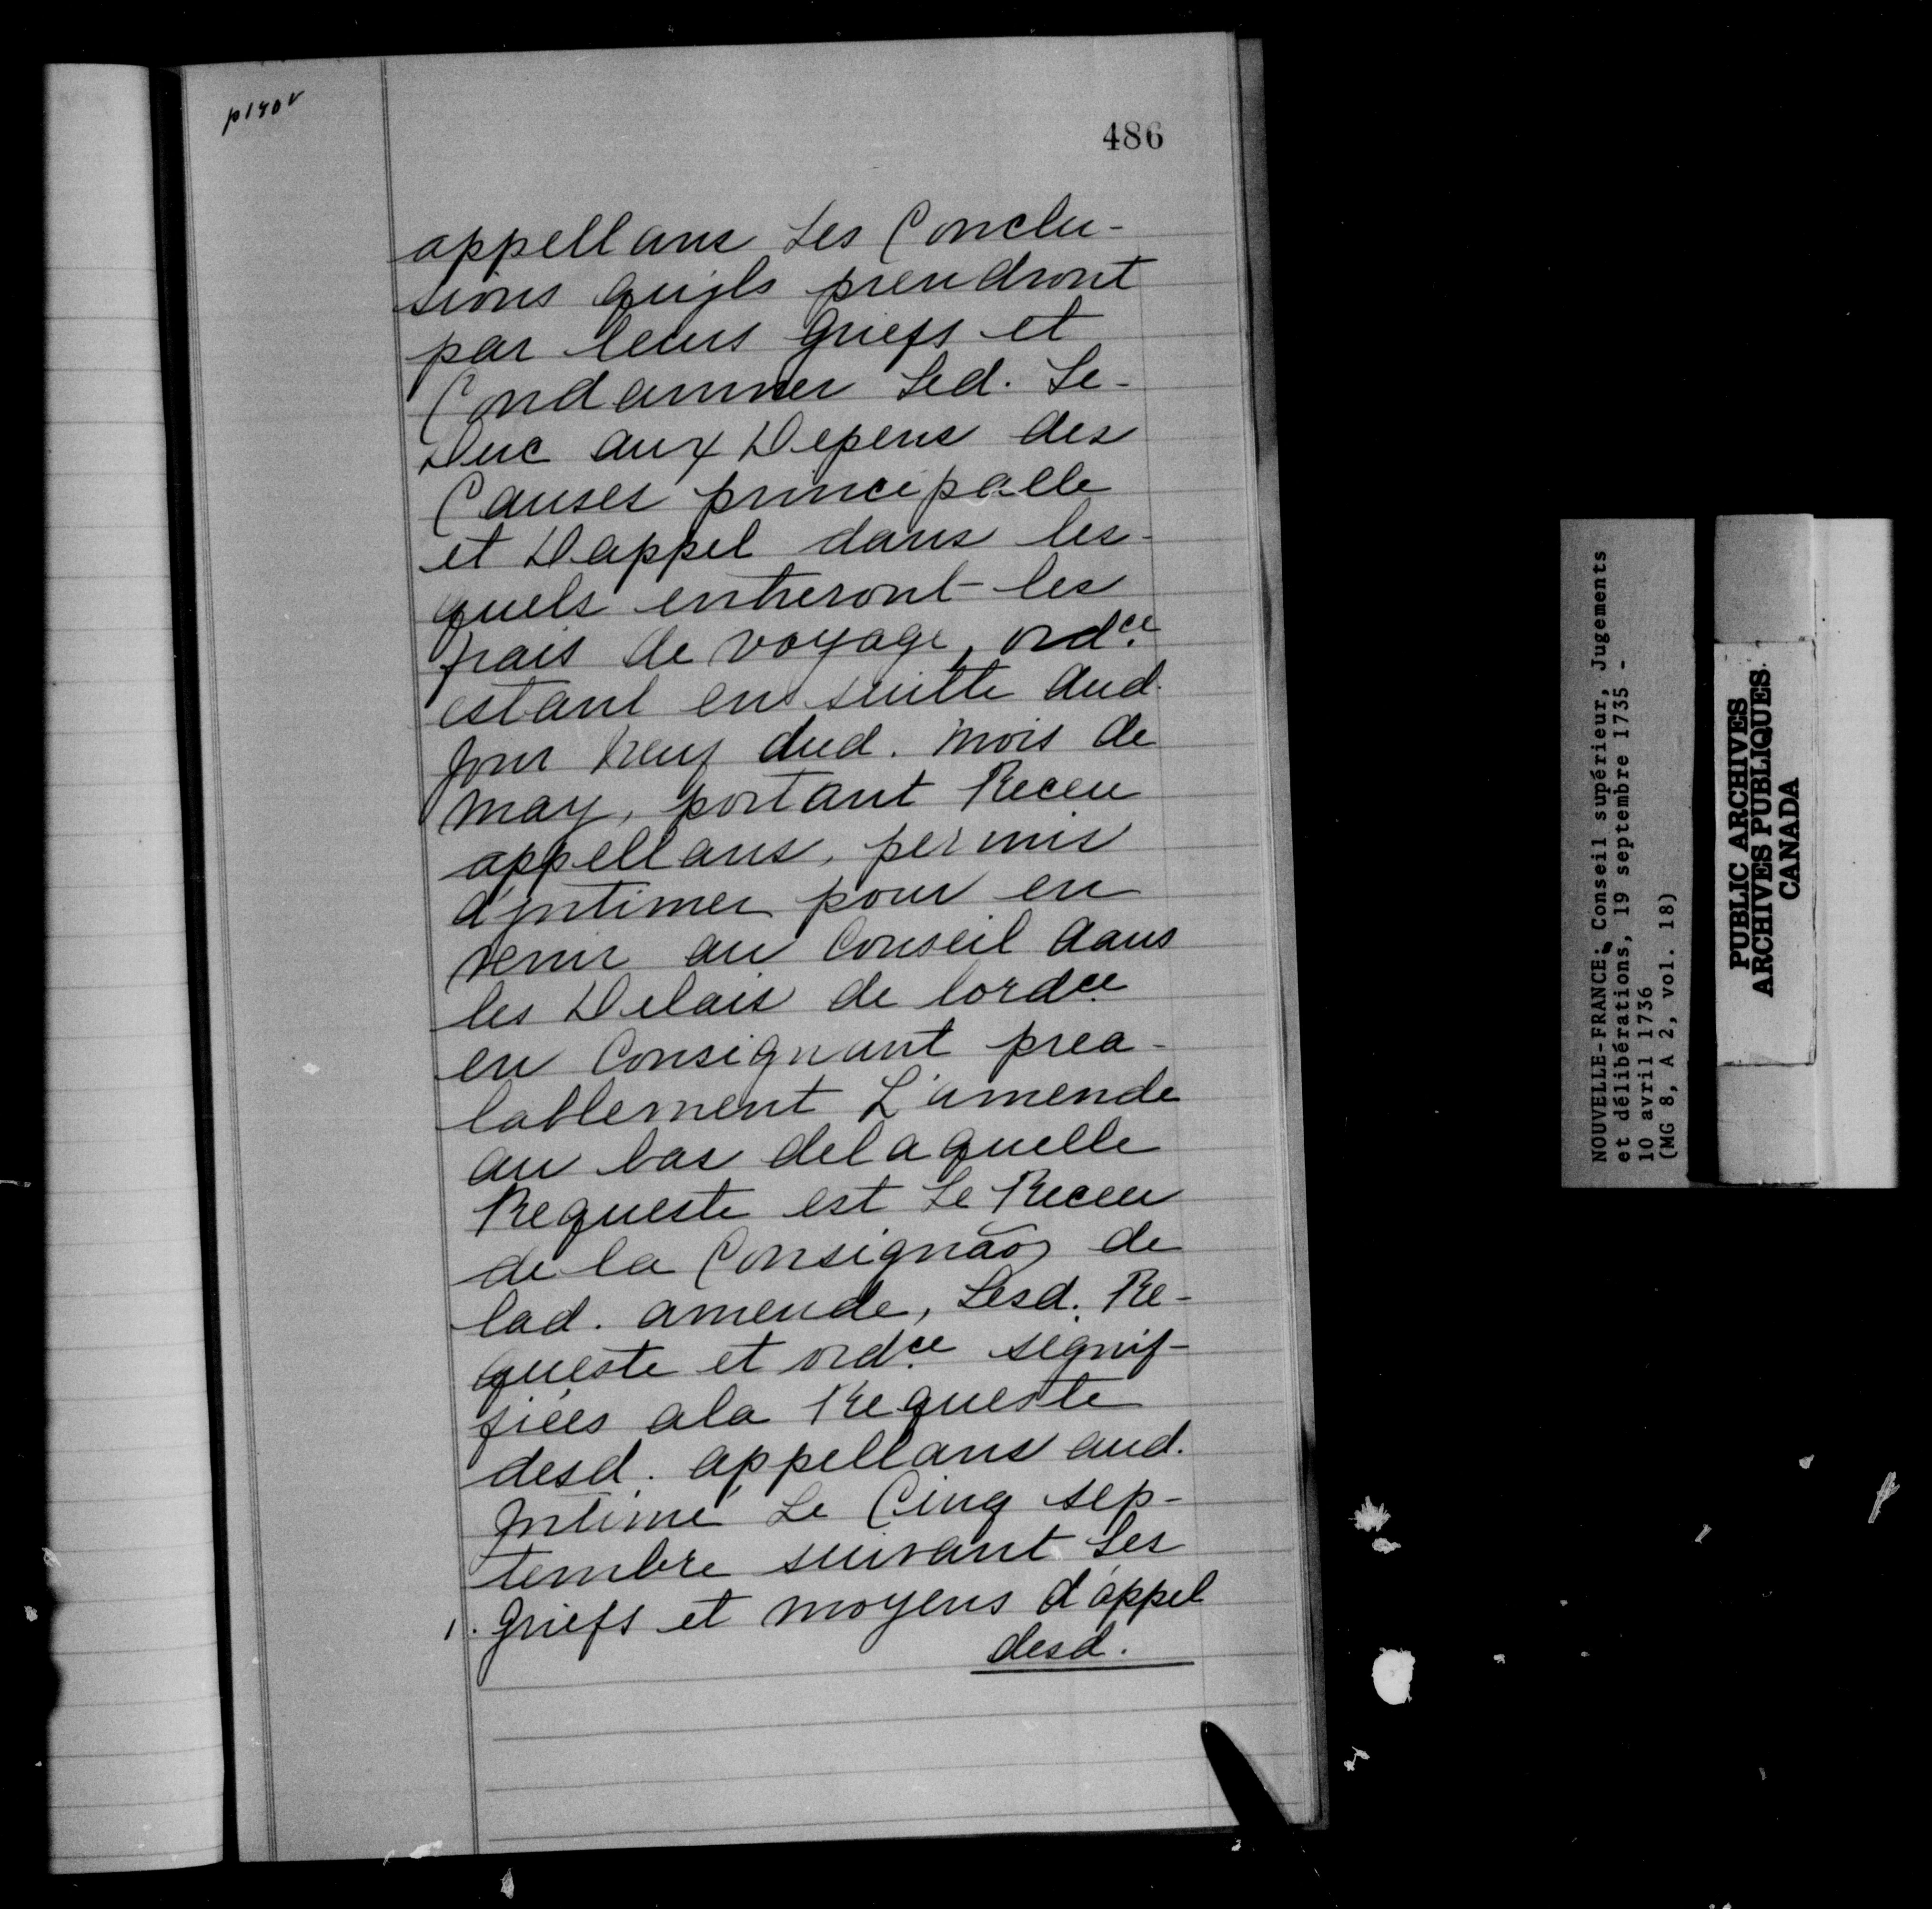 p190v
486
appellans Les Conclu-
sions qujls prendront
par leurs griefs et
Condamner Led. Le-
Duc aux Depens des
Causes principalle
et Dappel dans les-
quels entreront les
frais de voyage, ordce
estant ensuitte dud.
jour neuf dud. mois de
may, portant Receu
appellans, permis
d'jntimer pour en
venir au Conseil dans
les Delais de lordce
en Consignant prea-
lablement L'amende
au bas delaquelle
Requeste est Le Receu
de la Consignãon de
lad. amende, Lesd. Re-
queste et ordce signif-
fiées ala Requeste
desd. appellans aud.
Jntimé Le Cinq sep-
tembre suivant Les
1. griefs et moyens d'appel
desd.
NOUVELLE-FRANCE: Conseil supérieur, Jugements
et délibérations, 19 septembre 1735 -
10 avril 1736
(MG 8, A 2, vol. 18)
PUBLIC ARCHIVES
ARCHIVES PUBLIQUES
CANADA